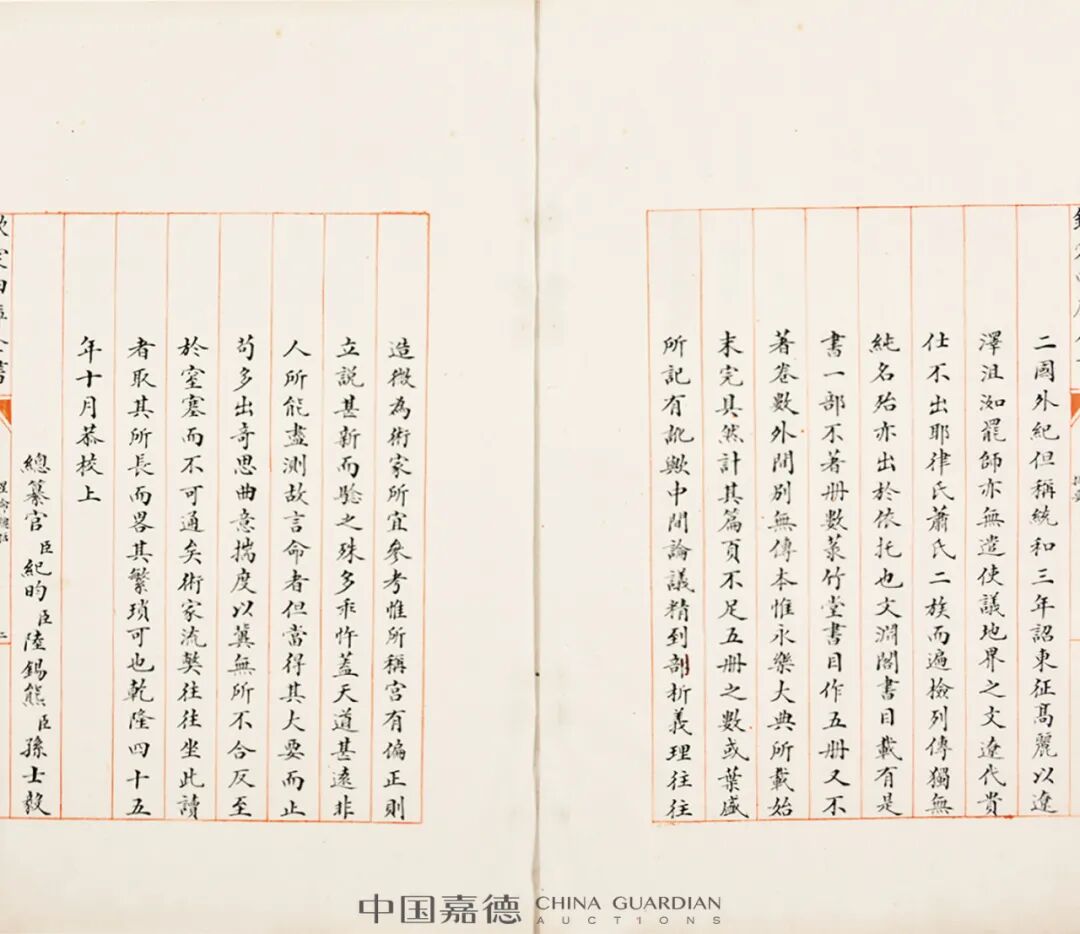 二國外紀但稱統和三年詔東征髙麗以遼
澤沮洳罷師亦無遣使議地界之文遼代貴
仕不出耶律氏蕭氏二族而遍檢列傳獨無
純名殆亦出於依托也文淵閣書目載有是
書一部不著册數菉竹堂書目作五册又不
著卷數外間别無傳本惟永樂大典所載始
末完具然計其篇頁不足五册之數或葉盛
所記有訛歟中間論議精到剖析義理往往
造微為術家所宜參考惟所稱宫有偏正則
立説甚新而驗之殊多乖忤蓋天道甚逺非
人所能盡測故言命者但當得其大要而止
苟多出奇思曲意揣度以冀無所不合反至
於窒塞而不可通矣術家流弊往往坐此讀
者取其所長而畧其繁瑣可也乾隆四十五
年十月恭校上
總纂官臣紀昀臣陸錫熊臣孫士毅
欽定四庫全書
中国嘉德 CHINA GUARDIAN
AUCTIONS